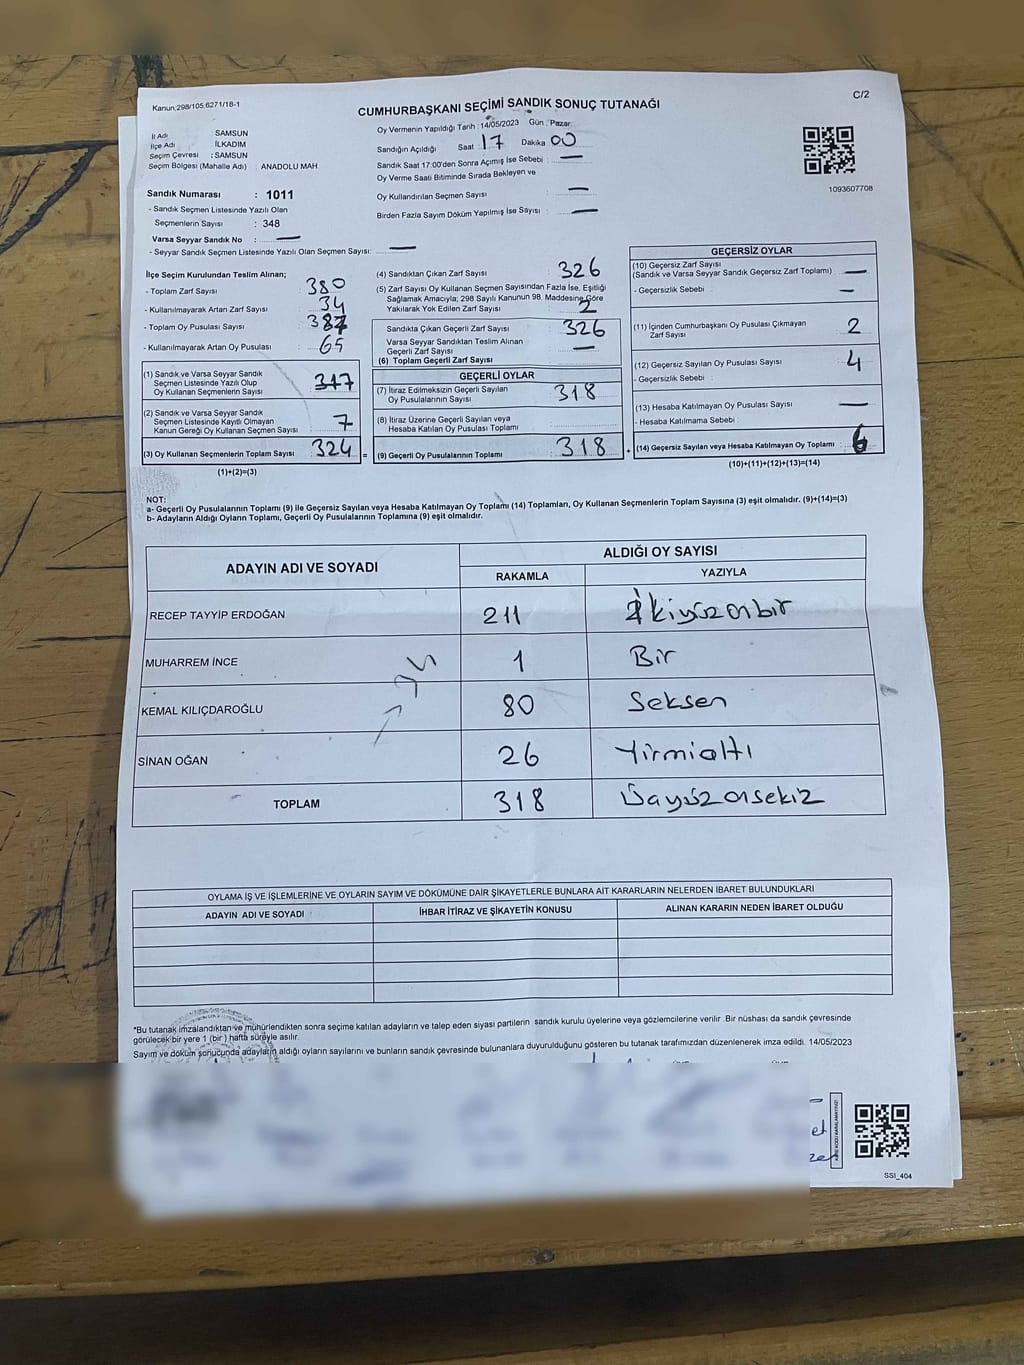 Kanun:298/105;6271/18-1
C/2
CUMHURBAŞKANI SEÇİMİ SANDIK SONUÇ TUTANAĞI
İl Adı SAMSUN
İlçe Adı İLKADIM
Seçim Çevresi : SAMSUN
Seçim Bölgesi (Mahalle Adı) : ANADOLU MAH.
Oy Vermenin Yapıldığı Tarih :14/05/2023 Gün : Pazar
Sandığın Açıldığı Saat : 17 Dakika 00
Sandık Saat 17:00'den Sonra Açılmış İse Sebebi : —
Oy Verme Saati Bitiminde Sırada Bekleyen ve
Oy Kullandırılan Seçmen Sayısı —
Birden Fazla Sayım Döküm Yapılmış İse Sayısı : —
1093607708
Sandık Numarası : 1011
- Sandık Seçmen Listesinde Yazılı Olan
Seçmenlerin Sayısı : 348
Varsa Seyyar Sandık No : —
- Seyyar Sandık Seçmen Listesinde Yazılı Olan Seçmen Sayısı: —
İlçe Seçim Kurulundan Teslim Alınan;
- Toplam Zarf Sayısı : 380
- Kullanılmayarak Artan Zarf Sayısı : 34
- Toplam Oy Pusulası Sayısı :
- Kullanılmayarak Artan Oy Pusulası : 65
(1) Sandık ve Varsa Seyyar Sandık
Seçmen Listesinde Yazılı Olup
Oy Kullanan Seçmenlerin Sayısı 317
(2) Sandık ve Varsa Seyyar Sandık
Seçmen Listesinde Kayıtlı Olmayan
Kanun Gereği Oy Kullanan Seçmen Sayısı 7
(3) Oy Kullanan Seçmenlerin Toplam Sayısı 324 =
(1)+(2)=(3)
(4) Sandıktan Çıkan Zarf Sayısı 326
(5) Zarf Sayısı Oy Kullanan Seçmen Sayısından Fazla İse, Eşitliği
Sağlamak Amacıyla; 298 Sayılı Kanunun 98. Maddesine Göre
Yakılarak Yok Edilen Zarf Sayısı : 2
Sandıkta Çıkan Geçerli Zarf Sayısı 326
Varsa Seyyar Sandıktan Teslim Alınan
Geçerli Zarf Sayısı —
(6) Toplam Geçerli Zarf Sayısı
GEÇERLİ OYLAR
(7) İtiraz Edilmeksizin Geçerli Sayılan
Oy Pusulalarının Sayısı : 318
(8) İtiraz Üzerine Geçerli Sayılan veya
Hesaba Katılan Oy Pusulası Toplamı
(9) Geçerli Oy Pusulalarının Toplamı 318 +
GEÇERSİZ OYLAR
(10) Geçersiz Zarf Sayısı
(Sandık ve Varsa Seyyar Sandık Geçersiz Zarf Toplamı) : —
- Geçersizlik Sebebi : —
(11) İçinden Cumhurbaşkanı Oy Pusulası Çıkmayan
Zarf Sayısı 2
(12) Geçersiz Sayılan Oy Pusulası Sayısı 4
- Geçersizlik Sebebi :
(13) Hesaba Katılmayan Oy Pusulası Sayısı : —
- Hesaba Katılmama Sebebi :
(14) Geçersiz Sayılan veya Hesaba Katılmayan Oy Toplamı : 6
(10)+(11)+(12)+(13)=(14)
NOT:
a- Geçerli Oy Pusulalarının Toplamı (9) ile Geçersiz Sayılan veya Hesaba Katılmayan Oy Toplamı (14) Toplamları, Oy Kullanan Seçmenlerin Toplam Sayısına (3) eşit olmalıdır. (9)+(14)=(3)
b- Adayların Aldığı Oyların Toplamı, Geçerli Oy Pusulalarının Toplamına (9) eşit olmalıdır.
ADAYIN ADI VE SOYADI
ALDIĞI OY SAYISI
RAKAMLA YAZIYLA
RECEP TAYYİP ERDOĞAN 211 İkiyüzonbir
MUHARREM İNCE 1 Bir
KEMAL KILIÇDAROĞLU 80 Seksen
SİNAN OĞAN 26 Yirmialtı
TOPLAM 318 Üçyüzonsekiz
OYLAMA İŞ VE İŞLEMLERİNE VE OYLARIN SAYIM VE DÖKÜMÜNE DAİR ŞİKAYETLERLE BUNLARA AİT KARARLARIN NELERDEN İBARET BULUNDUKLARI
ADAYIN ADI VE SOYADI İHBAR İTİRAZ VE ŞİKAYETİN KONUSU ALINAN KARARIN NEDEN İBARET OLDUĞU
*Bu tutanak imzalandıktan ve mühürlendikten sonra seçime katılan adayların ve talep eden siyasi partilerin sandık kurulu üyelerine veya gözlemcilerine verilir. Bir nüshası da sandık çevresinde
görülecek bir yere 1 (bir) hafta süreyle asılır.
Sayım ve döküm sonucunda adayların aldığı oyların sayılarını ve bunların sandık çevresinde bulunanlara duyurulduğunu gösteren bu tutanak tarafımızdan düzenlenerek imza edildi. 14/05/2023
SSI_404